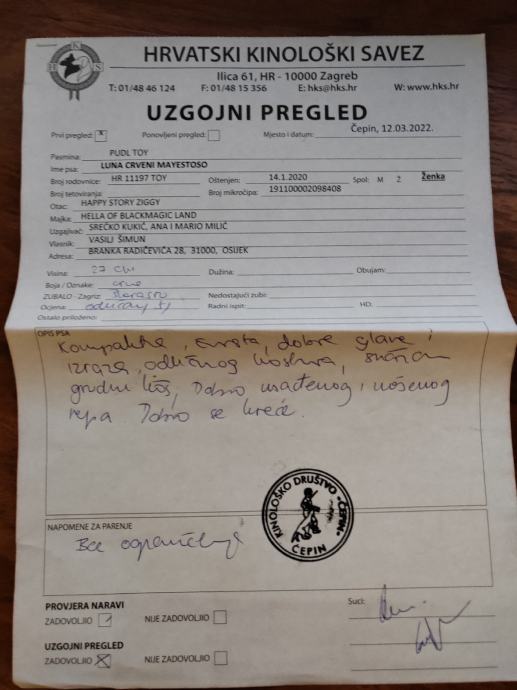 HRVATSKI KINOLOŠKI SAVEZ
Ilica 61, HR - 10000 Zagreb
T: 01/48 46 124 F: 01/48 15 356 E: hks@hks.hr W: www.hks.hr
UZGOJNI PREGLED
Prvi pregled: x Ponovljeni pregled: Mjesto i datum: Čepin, 12.03.2022.
Pasmina: PUDL TOY
Ime psa: LUNA CRVENI MAYESTOSO
Broj rodovnice: HR 11197 TOY Oštenjen: 14.1.2020 Spol: M Ž Ženka
Broj tetoviranja: Broj mikročipa: 191100002098408
Otac: HAPPY STORY ZIGGY
Majka: HELLA OF BLACKMAGIC LAND
Uzgajivač: SREĆKO KUKIĆ, ANA I MARIO MILIĆ
Vlasnik: VASILI ŠIMUN
Adresa: BRANKA RADIČEVIĆA 28, 31000, OSIJEK
Visina: 27 cm Dužina: Obujam:
Boja / Oznake: crne
ZUBALO - Zagriz: škarasto Nedostajući zubi:
Ocjena: Radni ispit: HD:
Ostalo priloženo:
OPIS PSA
Kompaktna, čvrsta, dobre glave i
izraza, odličnog kostura,
grudni koš, Dobro usađenog i nošenog
repa. Dobro se kreće.
KINOLOŠKO DRUŠTVO "ČEPIN"
ČEPIN
NAPOMENE ZA PARENJE
Bez ograničenja
PROVJERA NARAVI
ZADOVOLJIO NIJE ZADOVOLJIO
Suci:
UZGOJNI PREGLED
ZADOVOLJIO X NIJE ZADOVOLJIO